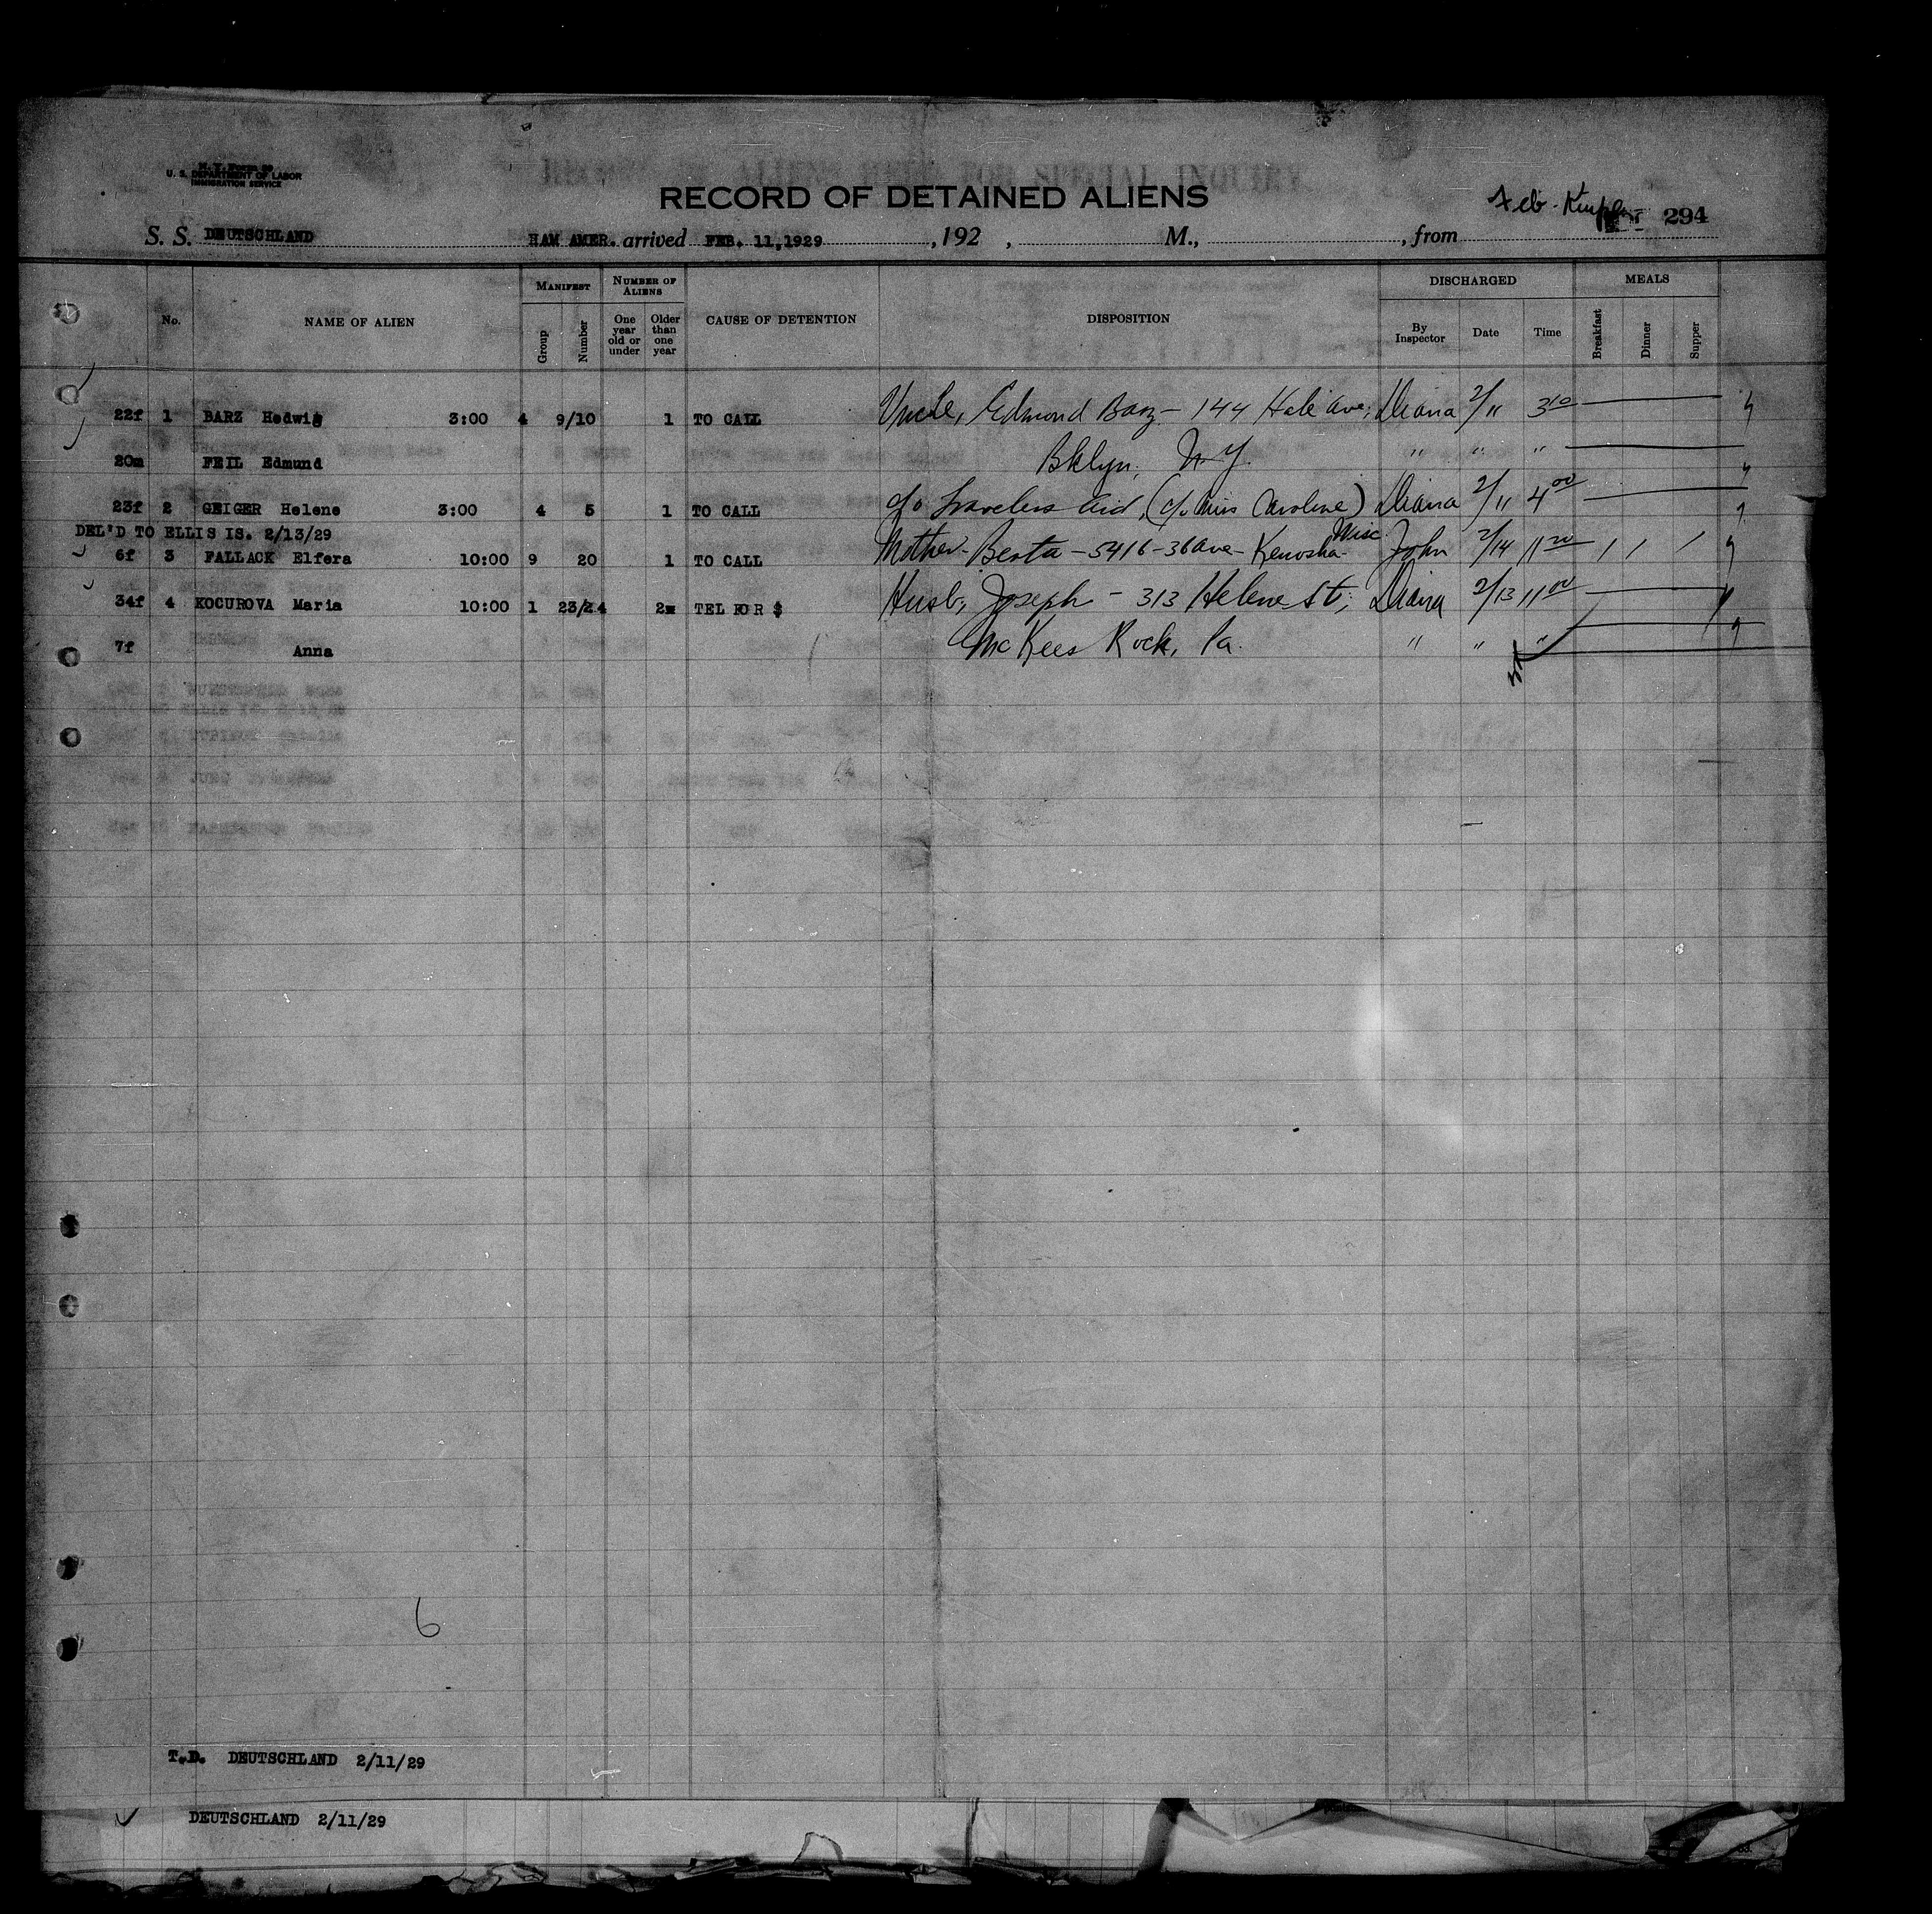 U. S. DEPARTMENT OF LABOR
IMMIGRATION SERVICE
RECORD OF DETAINED ALIENS
294
S. S. DEUTSCHLAND HAM AMER. arrived FEB. 11,1929 , 192 , M., , from
No. NAME OF ALIEN MANIFEST Group Number NUMBER OF ALIENS One year old or under Older than one year CAUSE OF DETENTION DISPOSITION DISCHARGED By Inspector Date Time MEALS Breakfast Dinner Supper
22f 1 BARZ Hedwig 3:00 4 9/10 1 TO CALL Uncle, Edmond Barz - 144 Hale Ave; Diana 2/11 3 10
20m FEIL Edmund Bklyn, N.Y. " " "
23f 2 GEIGER Helene 3:00 4 5 1 TO CALL c/o Travelers Aid, (c/o Miss Caroline) Diana 2/11 4 00
DEL'D TO ELLIS IS. 2/13/29
6f 3 FALLACK Elfera 10:00 9 20 1 TO CALL Mother - Berta - 5416 - 36 Ave - Kenosha - Wisc. John 2/14 11 20 / / /
34f 4 KOCUROVA Maria 10:00 1 23/24 2m TEL FOR $ Husb, Joseph - 313 Helene St; Diana 2/13 11 00
7f Anna McKees Rock, Pa. " " "
6
T.D. DEUTSCHLAND 2/11/29
DEUTSCHLAND 2/11/29